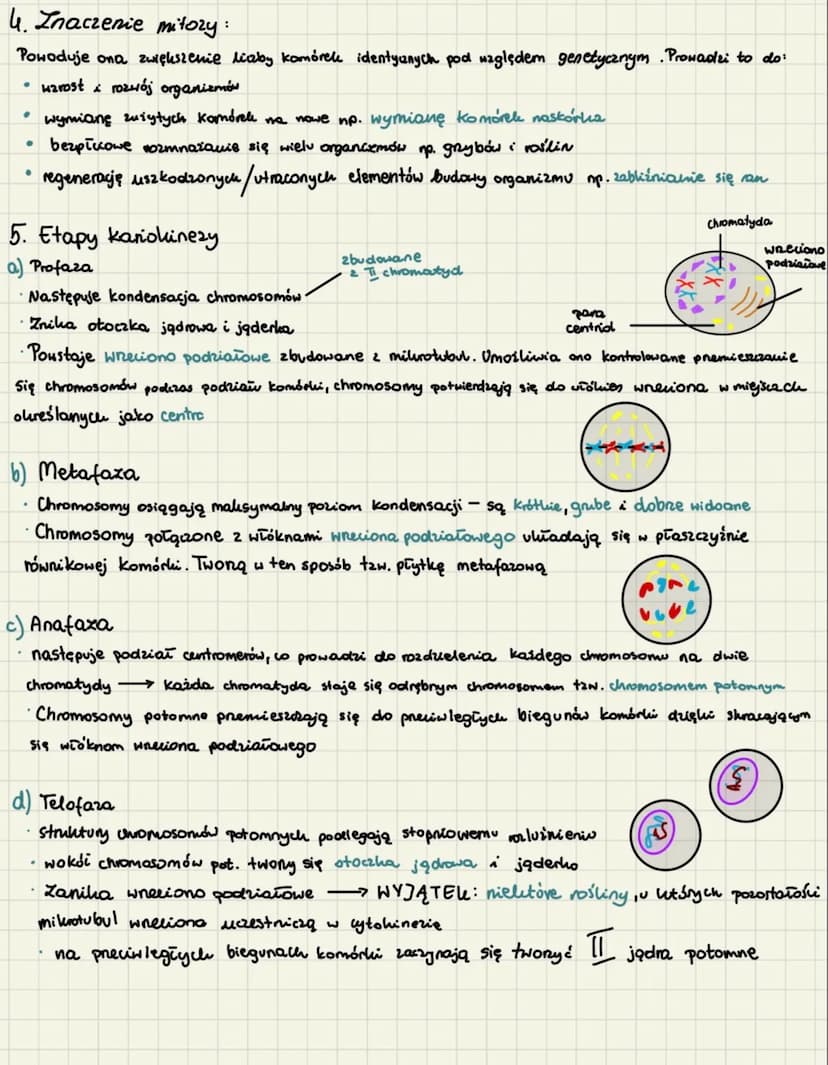 4. Znaczenie mitozy:
Powoduje ona zwiększenie liczby komórek identycznych pod względem genetycznym. Prowadzi to do:
• wzrost i rozwój organizmów
• wymianę zużytych komórek na nowe np. wymianę komórek naskórka
• bezpłciowe rozmnażanie się wielu organizmów np. grzybów i roślin
• regenerację uszkodzonych/utraconych elementów budowy organizmu np. zabliźnianie się ran
chromatyda
5. Etapy kariokinezy
zbudowane
z II chromatyd
wrzeciono
podziałowe
a) Profaza
· Następuje kondensacja chromosomów
para
centriol
· Znika otoczka jądrowa i jąderka
· Powstaje wrzeciono podziałowe zbudowane z mikrotubul. Umożliwia ono kontrolowane przemieszczanie
się chromosomów podczas podziału komórki, chromosomy potwierdzają się do włókien wrzeciona w miejscach
określanych jako centro
b) Metafaza
· Chromosomy osiągają maksymalny poziom kondensacji – są krótkie, grube i dobrze widoczne
· Chromosomy połączone z włóknami wrzeciona podziałowego układają się w płaszczyźnie
równikowej komórki. Tworzą w ten sposób tzw. płytkę metafazową
c) Anafaza
· następuje podział centromerów, co prowadzi do rozdzielenia każdego chromosomu na dwie
chromatydy → każda chromatyda staje się odrębnym chromosomem tzw. chromosomem potomnym
· Chromosomy potomne przemieszczają się do przeciwległych biegunów komórki dzięki skracającym
się włóknom wrzeciona podziałowego
d) Telofaza
· struktury chromosomów potomnych podlegają stopniowemu rozluźnieniu
· wokół chromosomów pot. tworzy się otoczka jądrowa i jąderko
· Zanika wrzeciono podziałowe → WYJĄTEK: niektóre rośliny, u których pozostałości
mikrotubul wrzeciona uczestniczą w cytokinezie
· na przeciwległych biegunach komórki zaczynają się tworzyć II jądra potomne